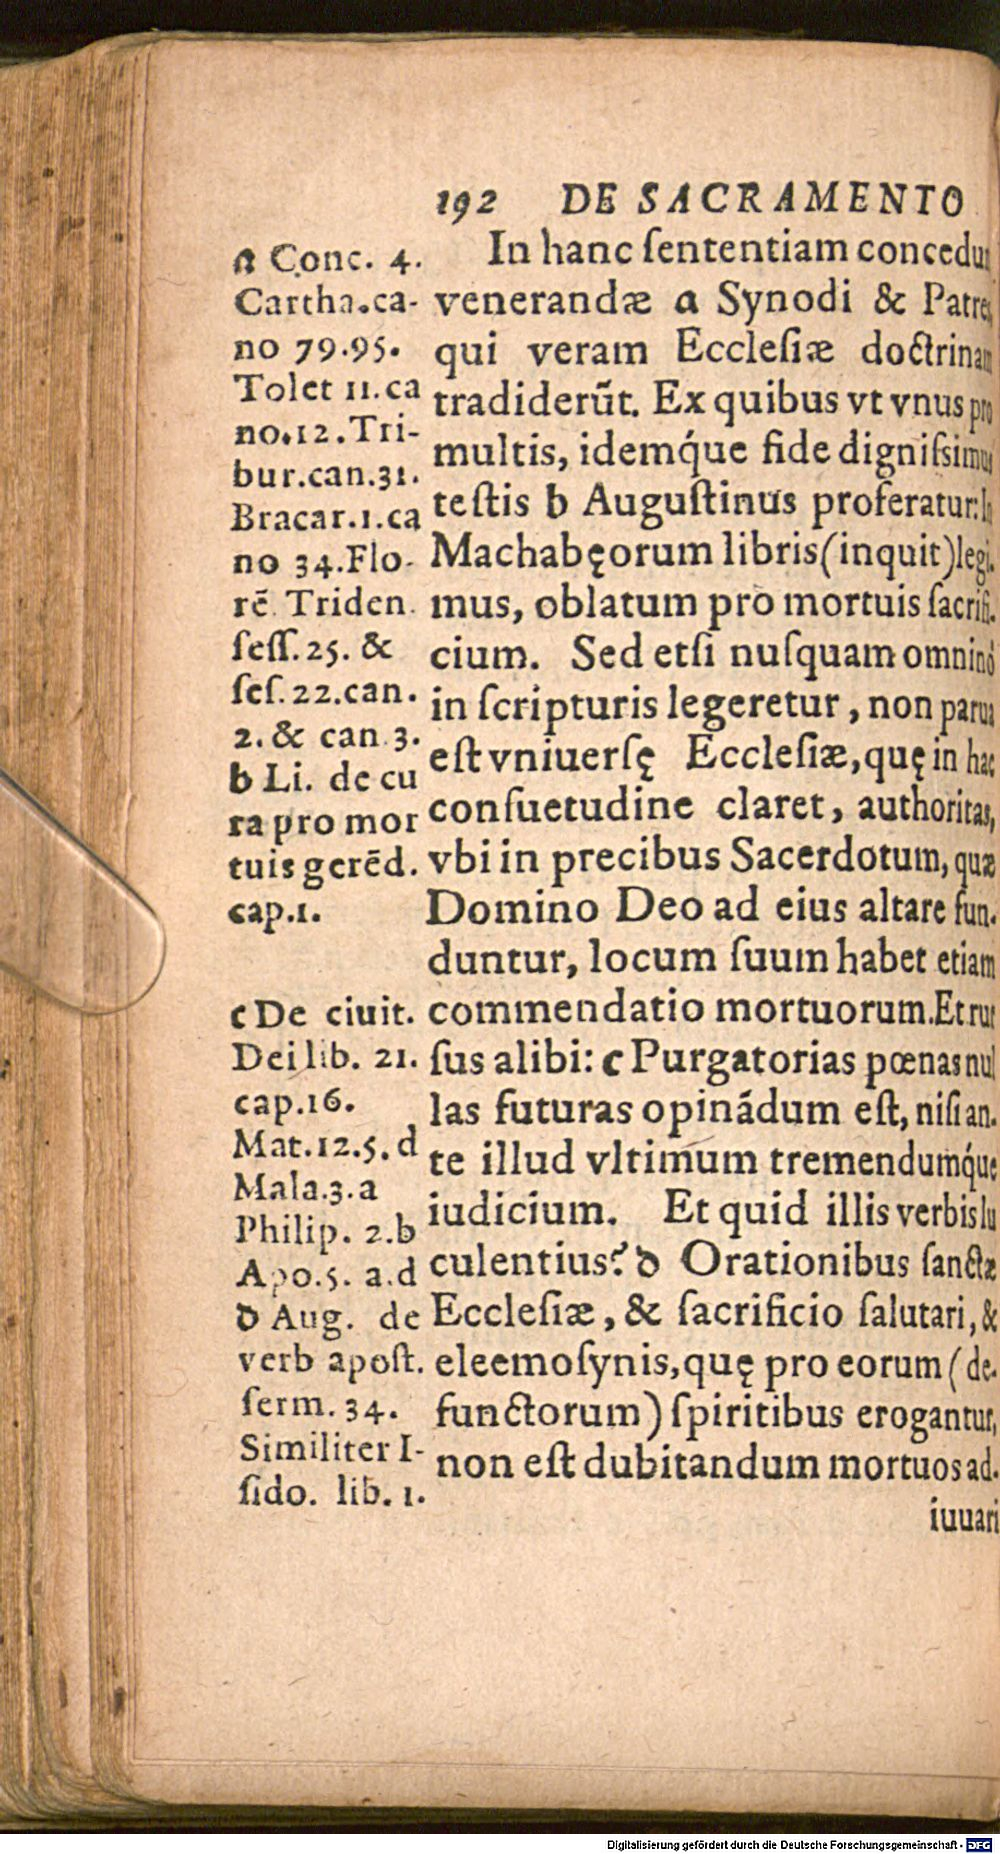 192 DE SACRAMENTO
In hanc ſententiam concedūt
venerandæ a Synodi & Patres
qui veram Eccleſiæ doctrinam
tradiderūt. Ex quibus vt vnus pro
multis, idemq́ue fide digniſsimus
teſtis b Auguſtinus proferatur: In
Machabęorum libris (inquit) legi-
mus, oblatum pro mortuis ſacrifi-
cium. Sed etſi nuſquam omninò
in ſcripturis legeretur, non parua
eſt vniuerſę Eccleſiæ, quę in hac
conſuetudine claret, authoritas,
vbi in precibus Sacerdotum, quæ
Domino Deo ad eius altare fun-
duntur, locum ſuum habet etiam
commendatio mortuorum. Et rur
ſus alibi: c Purgatorias pœnas nul
las futuras opinádum eſt, niſi an-
te illud vltimum tremendumq́ue
iudicium. Et quid illis verbis lu
culentius? d Orationibus ſanctæ
Eccleſiæ, & ſacrificio ſalutari, &
eleemoſynis, quę pro eorum (de-
functorum) ſpiritibus erogantur,
non eſt dubitandum mortuos ad-
iuuari
a Conc. 4.
Cartha.ca-
no 79.95.
Tolet 11.ca
no.12.Tri-
bur.can.31.
Bracar.1.ca
no 34.Flo-
rē. Triden.
ſeſſ.25. &
ſeſ.22.can.
2.& can.3.
b Li. de cu
ra pro mor
tuis gerēd.
cap.1.
c De ciuit.
Dei lib. 21.
cap.16.
Mat.12.5.d
Mala.3.a
Philip. 2.b
Apo.5. a.d
d Aug. de
verb apoſt.
ſerm.34.
Similiter I-
ſido. lib. 1.
Digitalisierung gefördert durch die Deutsche Forschungsgemeinschaft - DFG